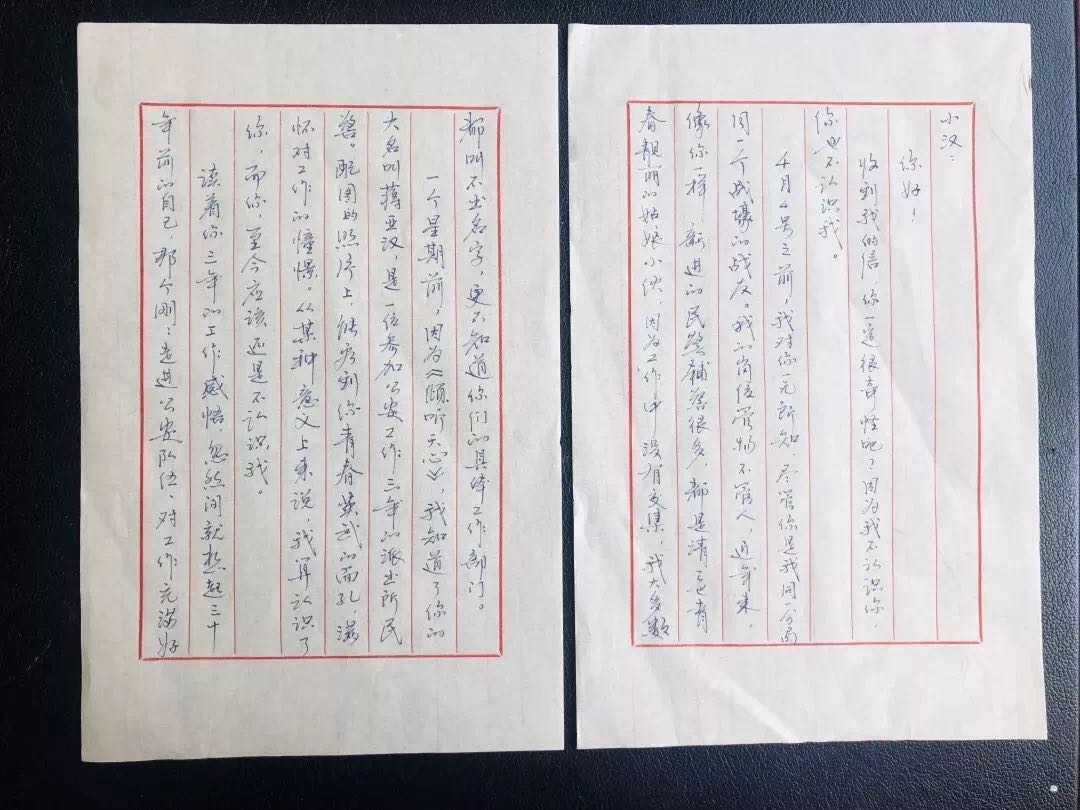 小汉：
你好！
收到我的信，你一定很奇怪吧？因为我不认识你，
你也不认识我。
4月4号之前，我对你一无所知，尽管你是我同一分局
同一个战壕的战友。我的岗位管物不管人，近年来，
像你一样，新进的民警辅警很多，都是清一色青
春靓丽的姑娘小伙，因为工作中没有交集，我大多数
都叫不出名字，更不知道你们的具体工作部门。
一个星期前，因为《倾听天心》，我知道了你的
大名叫蒋亚汉，是一位参加公安工作三年的派出所民
警。配图的照片上，能看到你青春英武的面孔，满
怀对工作的憧憬。从某种意义上来说，我算认识了
你，而你，至今应该还是不认识我。
读着你三年的工作感悟，忽然间就想起三十
年前的自己，那个刚刚走进公安队伍、对工作充满好